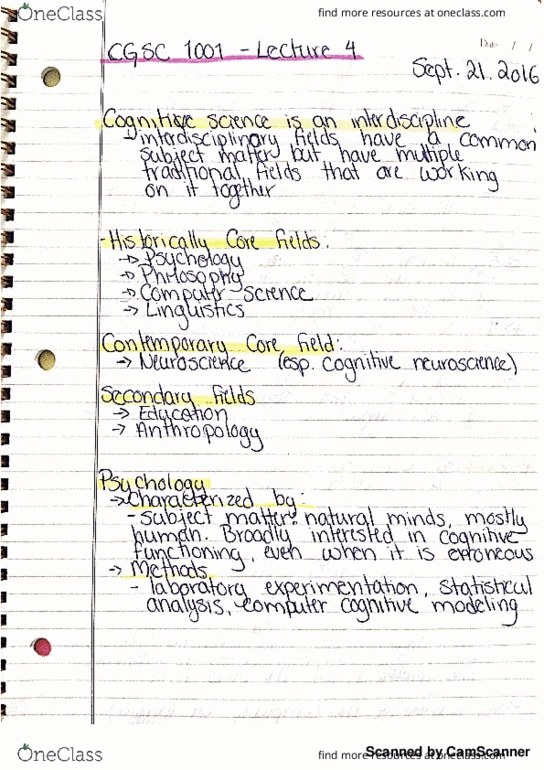 OneClass
find more resources at oneclass.com
CGSC 1001 - Lecture 4
Sept. 21. 2016
Cognitive science is an interdiscipline
interdisciplinary fields have a common
subject matter but have multiple
traditional fields that are working
on it together
- Historically Core fields:
→ Psychology
→ Philosophy
→ Computer Science
→ Linguistics
Contemporary Core field:
→ Neuroscience (esp. cognitive neuroscience)
Secondary fields
→ Education
→ Anthropology
Psychology
→ Characterized by:
- subject matter: natural minds, mostly
human. Broadly interested in cognitive
functioning, even when it is erroneous
→ Methods
- laboratory experimentation, statistical
analysis, computer cognitive modeling
OneClass
find more resources at oneclass.com
Scanned by CamScanner